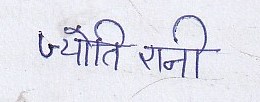 ज्योति रानी